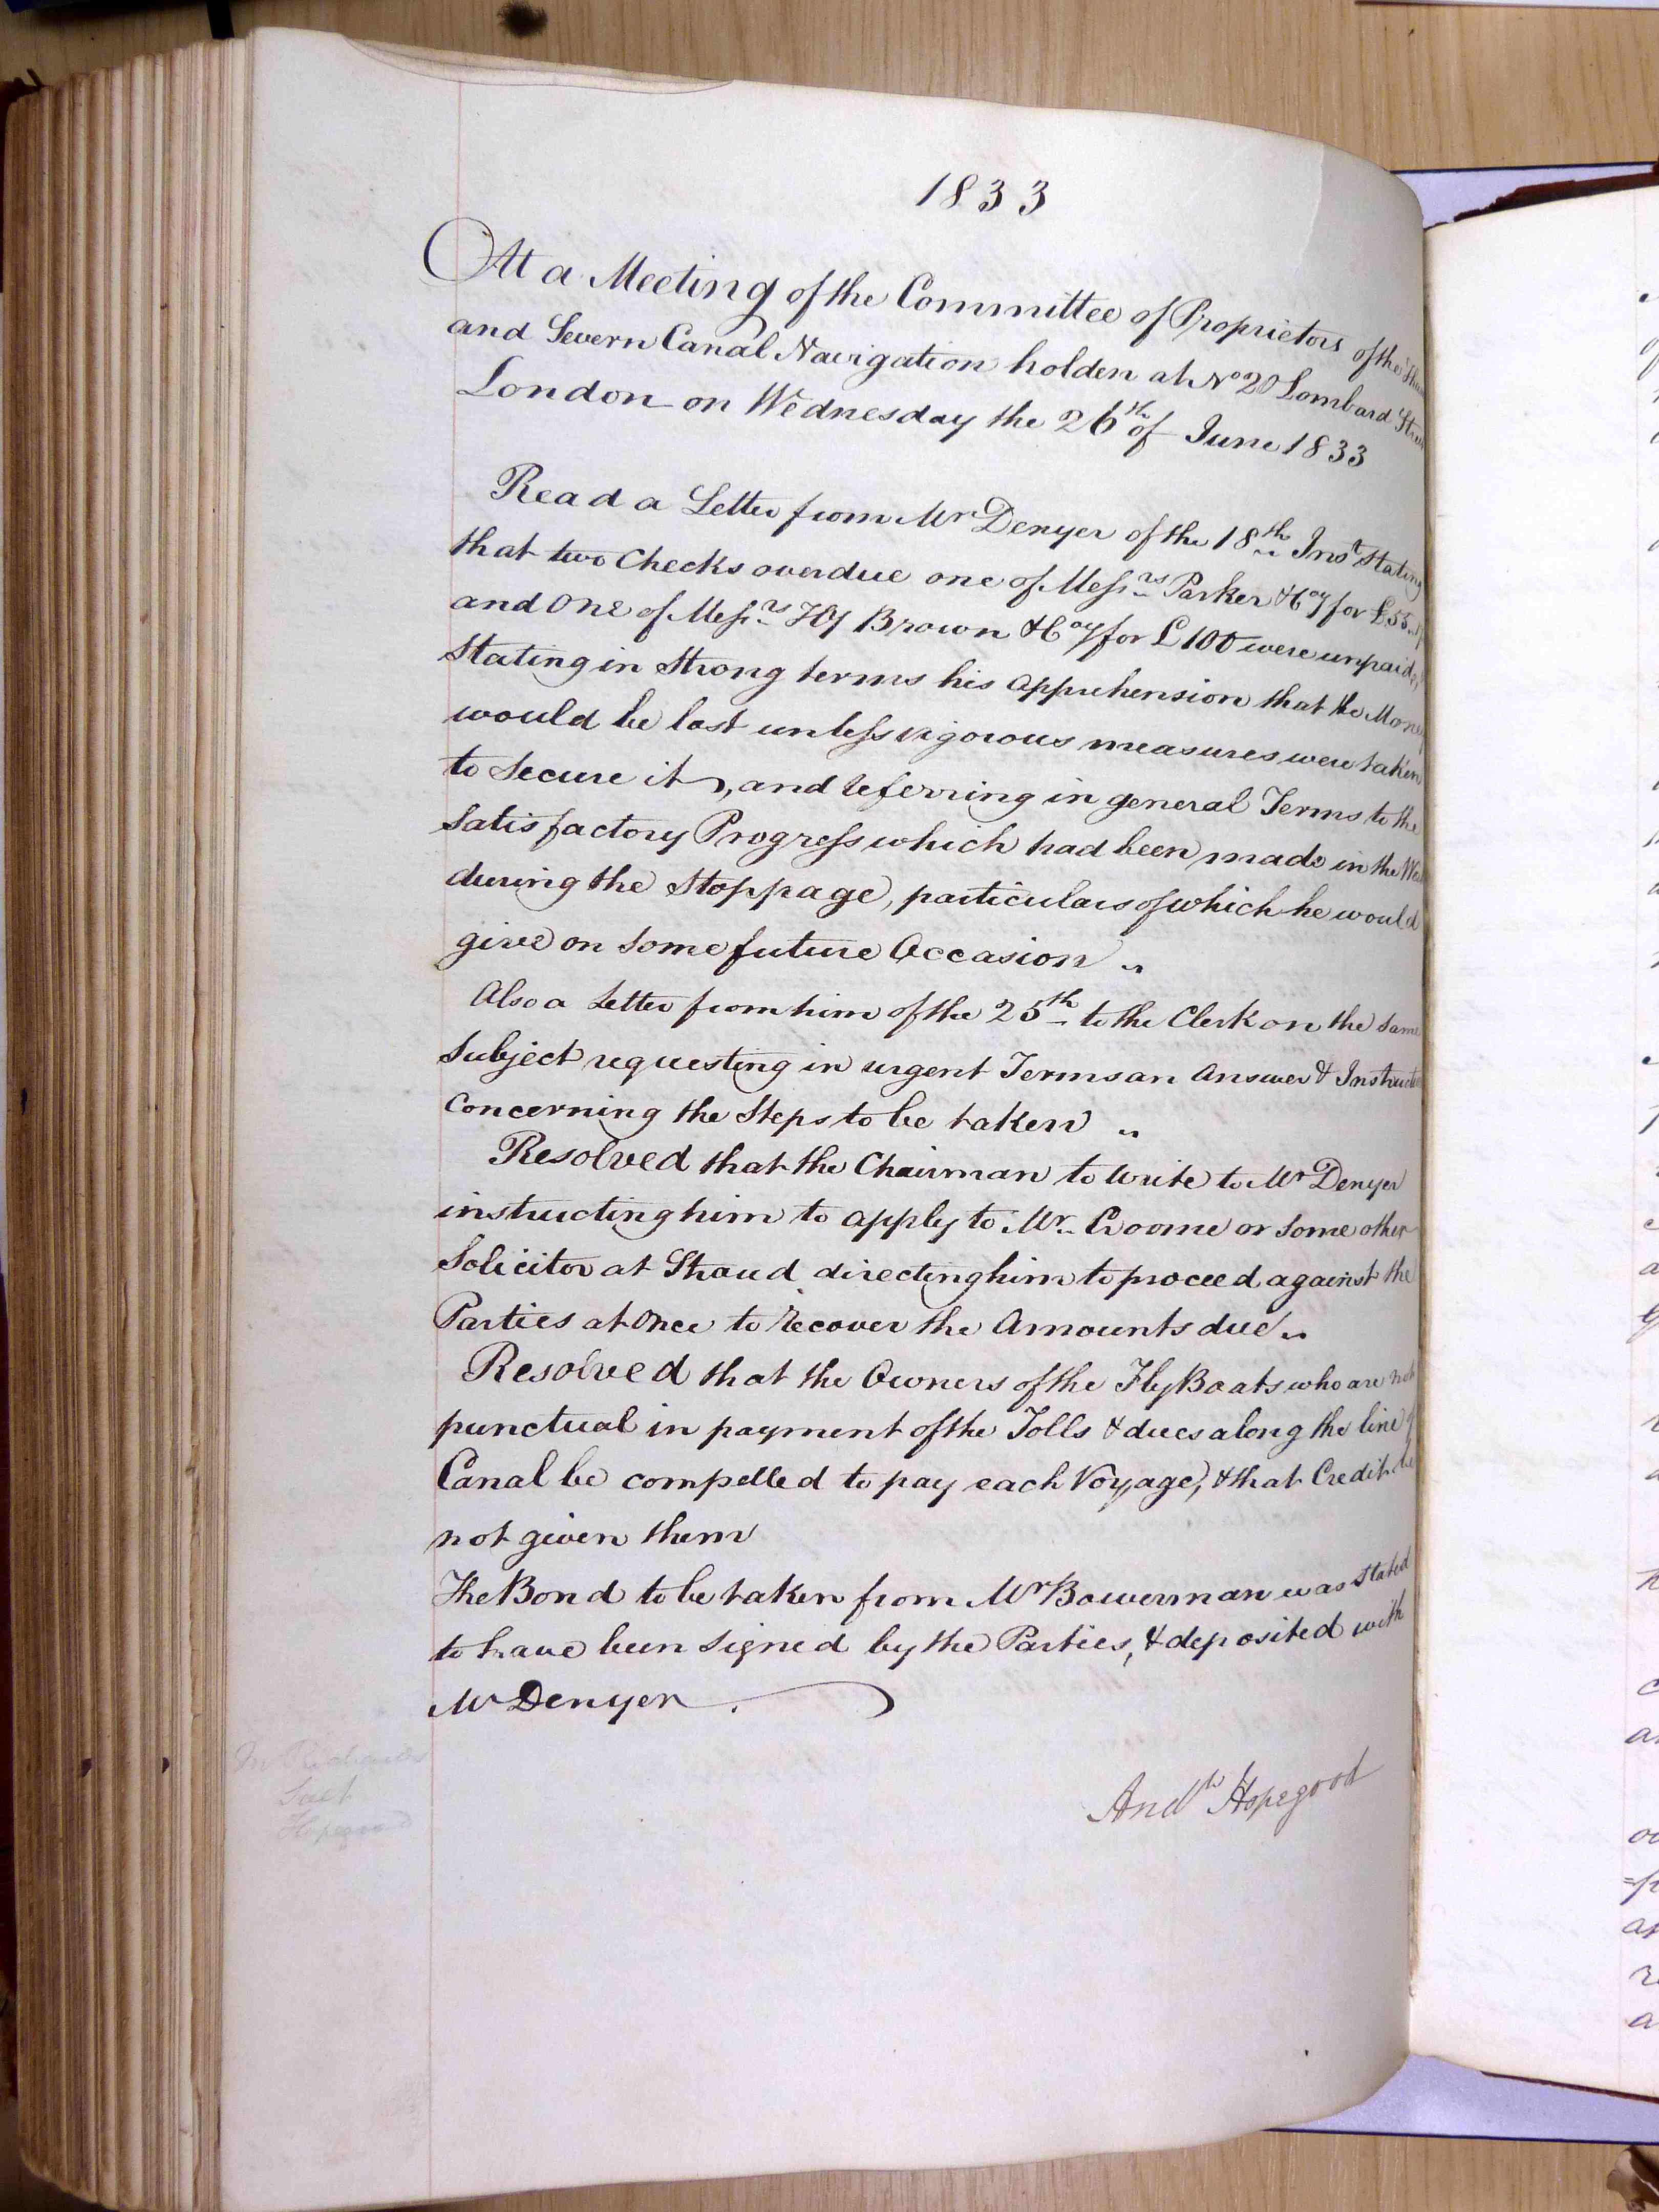 1833
At a Meeting of the Committee of Proprietors of the
and Severn Canal Navigation holden at No 20 Lombard
London on Wednesday the 26th of June 1833
Read a Letter from Mr Denyer of the 18th Inst Stating
that two Checks overdue one of Messrs Parker & Coy for £55
and One of Messrs Hy Brown & Coy for £100 were unpaid
Stating in Strong terms his apprehension that the Money
would be lost unless vigorous measures were taken
to Secure it, and referring in general Terms to the
Satisfactory Progress which had been made in the
during the Stoppage, particulars of which he would
give on Some future Occasion
Also a Letter from him of the 25th to the Clerk on the Same
Subject requesting in urgent Terms an answer &
Concerning the Steps to be taken
Resolved that the Chairman to Write to Mr Denyer
instructing him to apply to Mr Croome or Some other
Solicitor at Stroud directing him to proceed against the
Parties at Once to recover the Amounts due
Resolved that the Owners of the Fly Boats who are not
punctual in payment of the Tolls & dues along the line
Canal be compelled to pay each Voyage, & that Credit be
not given them
The Bond to be taken from Mr Bowerman was Stated
to have been Signed by the Parties, & deposited with
Mr Denyer.
Andw Hopegood